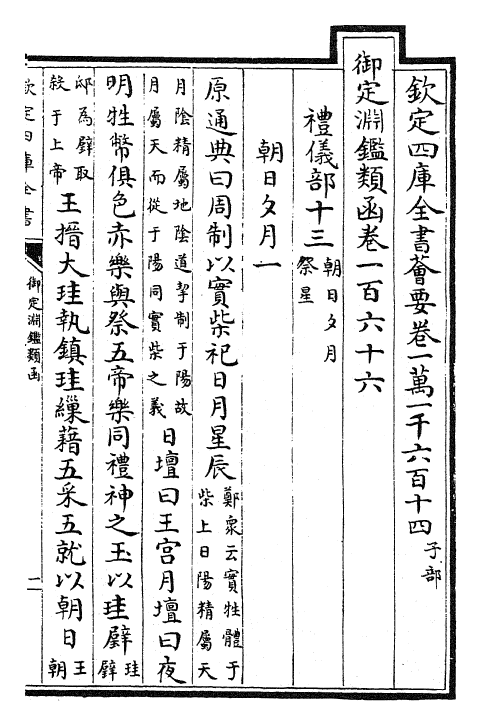 欽定四庫全書薈要卷一萬一千六百十四 子部
御定淵鑑類函卷一百六十六
禮儀部十三 朝日夕月 祭星
朝日夕月一
原通典曰周制以實柴祀日月星辰 鄭衆云實牲體于柴上日陽精屬天
月陰精屬地陰道挈制于陽故月屬天而從于陽同實柴之義 日壇曰王宮月壇曰夜
明牲幣俱色赤樂與祭五帝樂同禮神之玉以珪璧 珪璧
邸為璧取殺于上帝 王搢大珪執鎮珪繅藉五采五就以朝日 王朝
欽定四庫全書
御定淵鑑類函